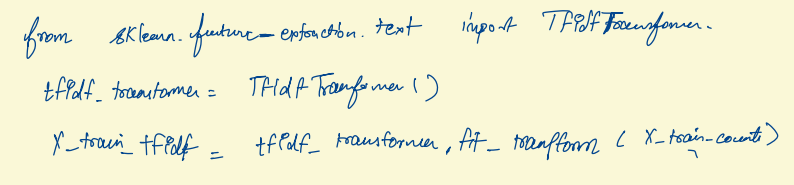 from sklearn.feature-extraction.text import TfidfTransformer.
tfidf_transformer = TfidfTransformer()
X_train_tfidf = tfidf_transformer.fit_transform(X_train-counts)